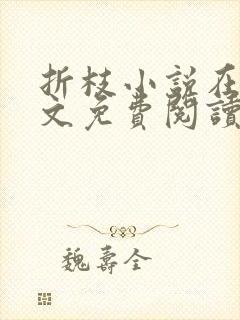 折枝小説在
文免費閱讀
魏壽全